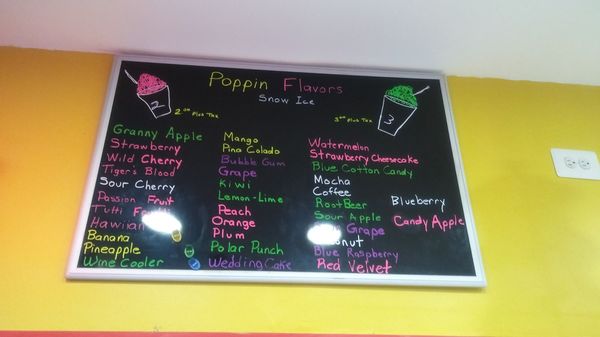 Poppin Flavors
Snow Ice
2
2.00 Plus Tax
3
3.00 Plus Tax
Granny Apple
Strawberry
Wild Cherry
Tiger's Blood
Sour Cherry
Passion Fruit
Tutti
Hawiian
Banana
Pineapple
Wine Cooler
Mango
Pina Colado
Bubble Gum
Grape
Kiwi
Lemon-Lime
Peach
Orange
Plum
Polar Punch
Wedding Cake
Watermelon
Strawberry Cheesecake
Blue Cotton Candy
Mocha
Coffee
RootBeer
Sour Apple
Grape
Blue Raspberry
Red Velvet
Blueberry
Candy Apple